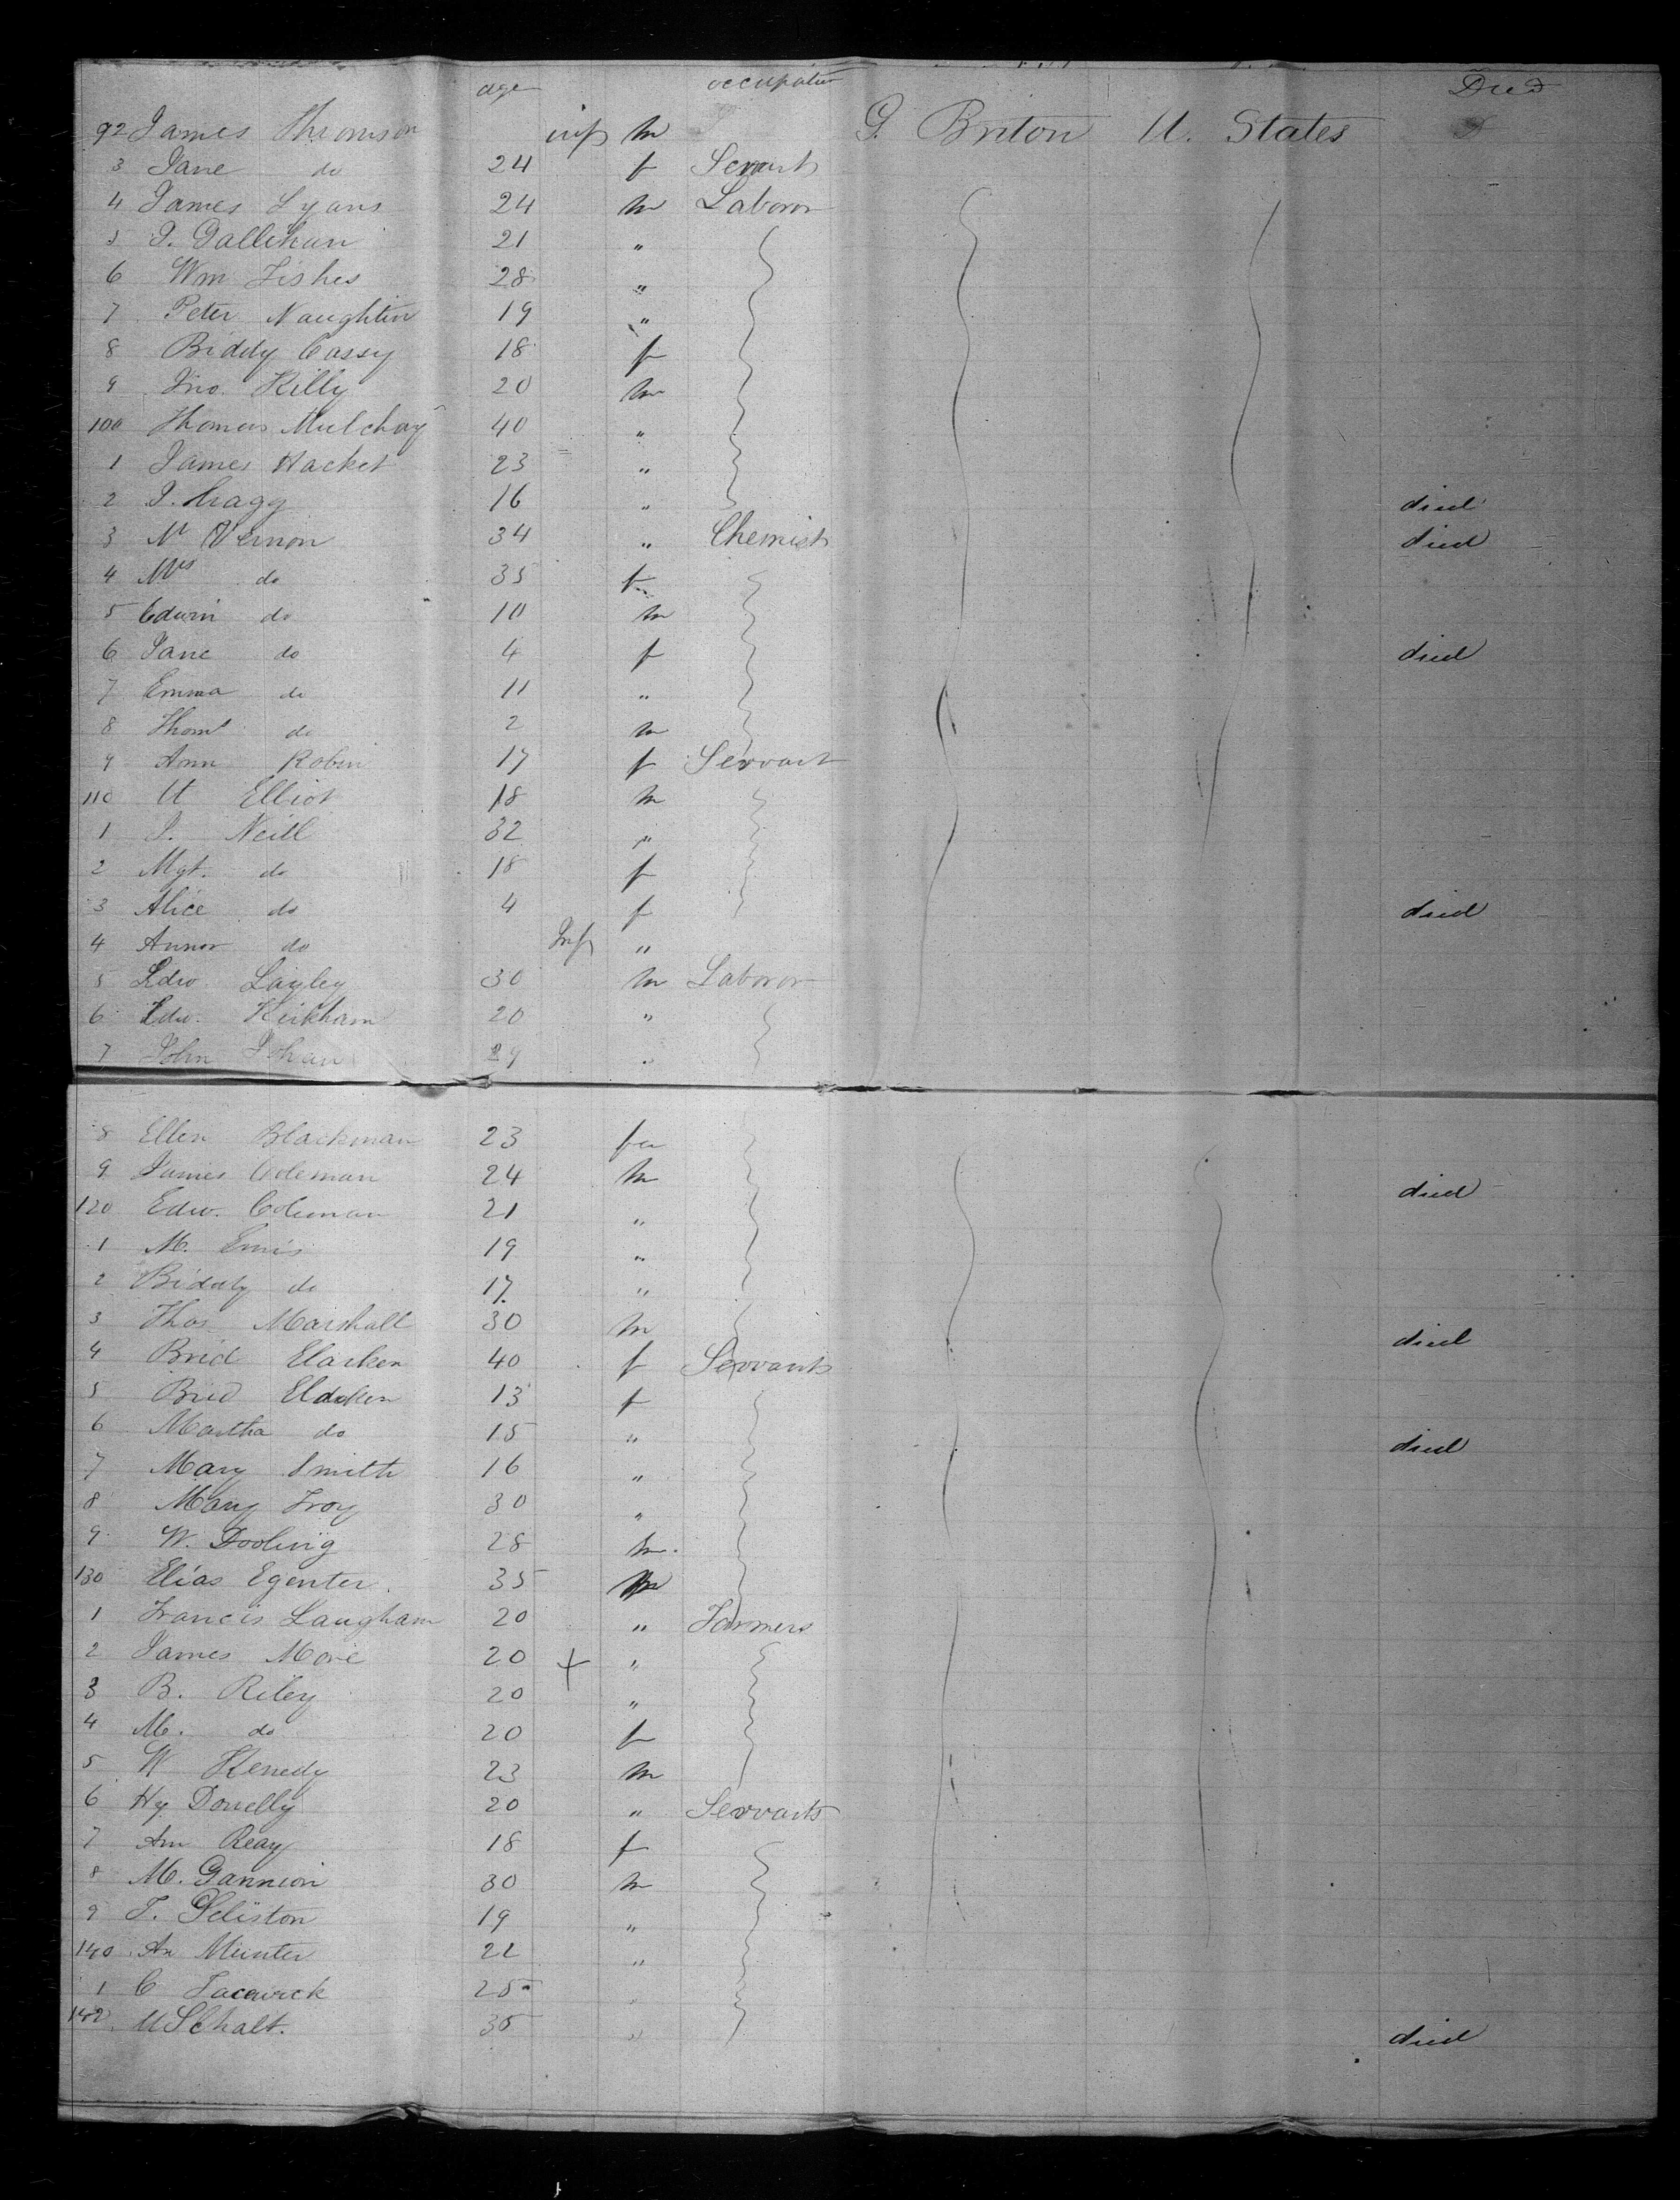 age occupation Died
92 James Thomson inf m G. Briton U. States
3 Jane do 24 f Servant
4 James Lyans 24 m Laboror
5 J. Dallihan 21 "
6 Wm Fishes 28 "
7 Peter Naughtin 19 "
8 Biddy Cassy 18 f
9 Jno. Killy 20 m
100 Thomas Mulchay 40 "
1 James Hacket 23 "
2 J. 16 " died
3 Vernon 34 " Chemist died
4 Mrs do 35 f
5 Edwin do 10 m
6 Jane do 4 f died
7 Emma do 11 "
8 Thoms do 2 m
9 Ann Robin 17 f Servant
110 Elliot 18 m
1 J. Neill 32 "
2 Mgt. do 18 f
3 Alice do 4 f died
4 do Inf "
5 Edw Layley 30 m Laboror
6 Edw. Kirkham 20 "
7 John 29 "
8 Ellen Blackman 23 fe
9 James Coleman 24 m died
120 Edw. Coleman 21 "
1 M. Ennis 19 "
2 Biddy do 17 "
3 Thos Marshall 30 m died
4 Brid Clarken 40 f Servants
5 Brid 13 f
6 Martha do 15 " died
7 Mary Smith 16 "
8 Mary Troy 30 "
9 W. Dooling 28 m.
130 Elias Egenter. 35 m
1 Francis Laugham 20 " Farmers
2 James More 20 + "
3 B. Riley 20 "
4 M. do 20 f
5 W Kenedy 23 m
6 Hy Donelly 20 " Servants
7 Ann Reay 18 f
8 M. Gannion 30 m
9 T. 19 "
140 An Munter "
1 C 25 "
142 35 " died